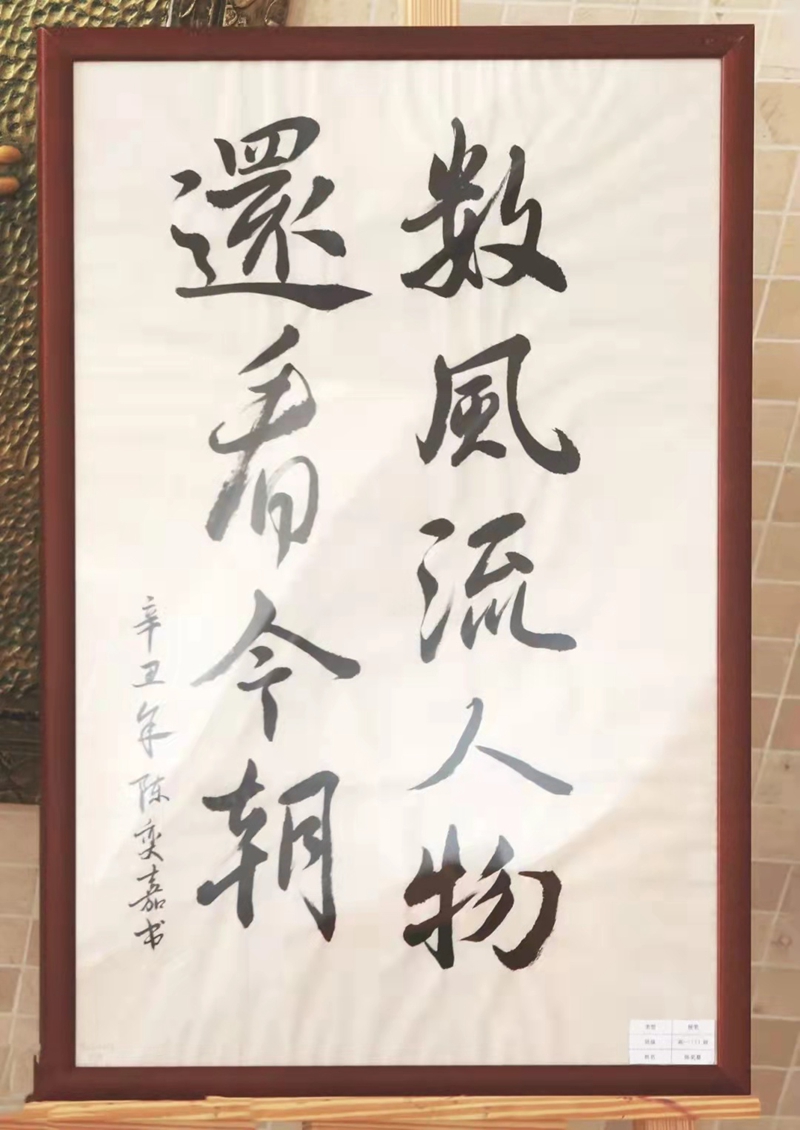 数風流人物
還看今朝
辛丑年陈奕嘉书